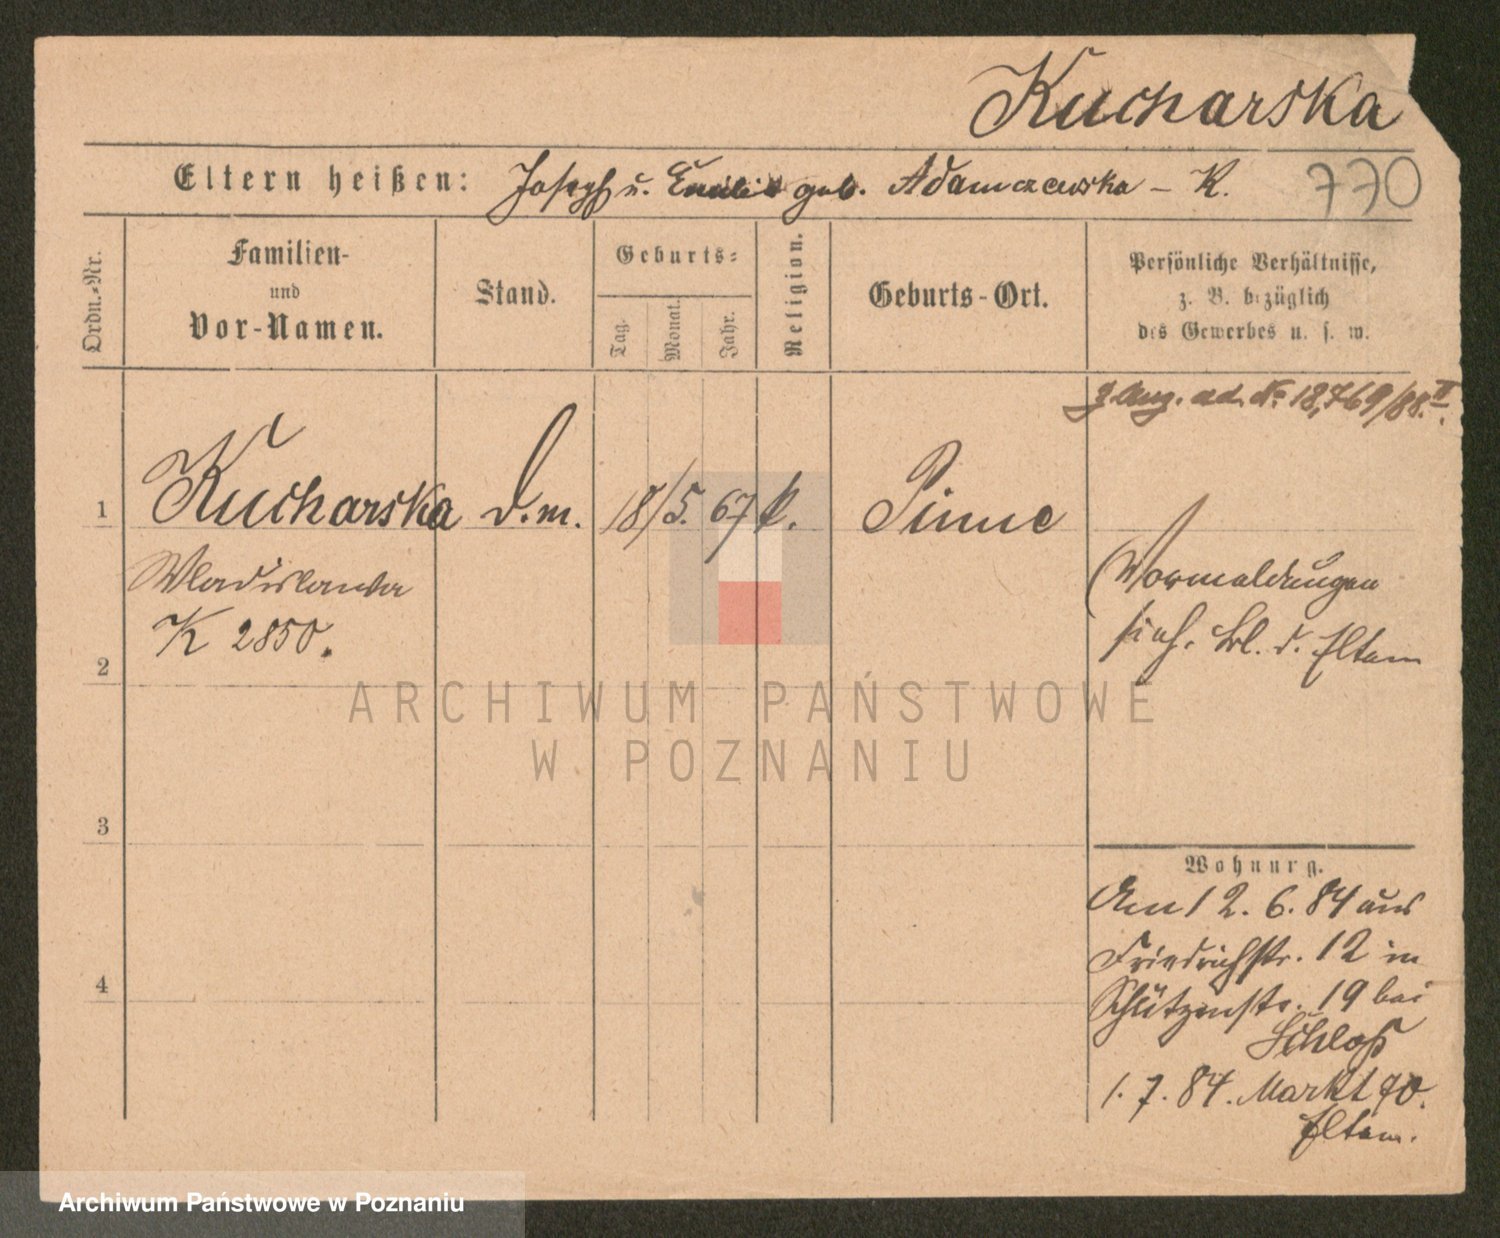 Kucharska
Eltern heißen: Joseph u. Emilie geb. Adamczewska – K. 770
Ordn.=Nr.
Familien-
und
Vor-Namen.
Stand.
Geburts=
Tag.
Monat.
Jahr.
Religion.
Geburts-Ort.
Persönliche Verhältnisse,
z. B. bezüglich
des Gewerbes u. s. w.
ad. No 18,769/88. II.
1 Kucharska D. m. 18/5. 67 k. Pinne
Wladislawa
K 2850.
Vormeldungen
sieh. Bl. d. Eltern
2
3
4
Wohnung.
Am 12. 6. 84 aus
Friedrichstr. 12 in
Schützenstr. 19 bei
Schloß
1. 7. 84. Markt 70.
Eltern.
ARCHIWUM PAŃSTWOWE
W POZNANIU
Archiwum Państwowe w Poznaniu